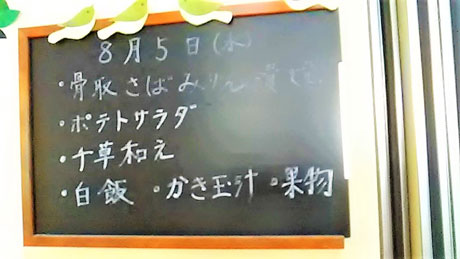 8月5日(水)
・骨取さばみりん漬焼
・ポテトサラダ
・千草和え
・白飯 ・かき玉汁 ・果物